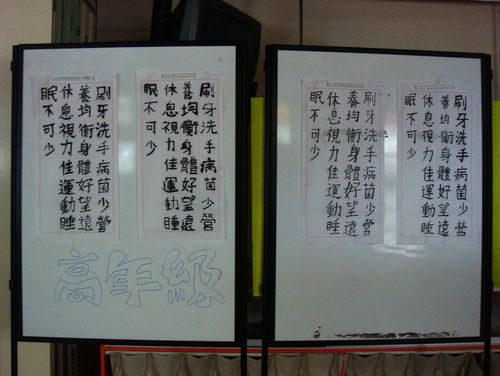 刷牙洗手病菌少營
養均衡身體好望遠
休息視力佳運動睡
眠不可少
刷牙洗手病菌少營
養均衡身體好望遠
休息視力佳運動睡
眠不可少
高年級
刷牙洗手病菌少營
養均衡身體好望遠
休息視力佳運動睡
眠不可少
刷牙洗手病菌少營
養均衡身體好望遠
休息視力佳運動睡
眠不可少